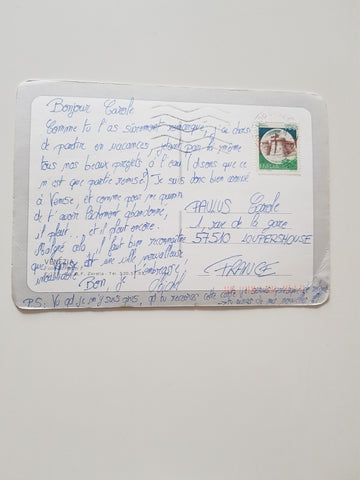 Bonjour Carole
Comme tu l'as sûrement remarqué, j'ai choisi
de partir en vacances, jetant par la même
tous nos beaux projets à l'eau (disons que ce
n'est que partie remise!) Je suis donc bien arrivé
à Venise, et comme pour me punir
de t'avoir lâchement abandonnée,
il pleut... et il pleut encore.
Malgré cela, il faut bien reconnaître
que Venise est une ville merveilleuse
Bon, je t'embrasse,
VENEZIA
PAULUS Carole
1 rue de la gare
57510 LOUPERSHOUSE
FRANCE
P.S: Vu que je m'y suis pris, qd tu recevras cette carte je serais